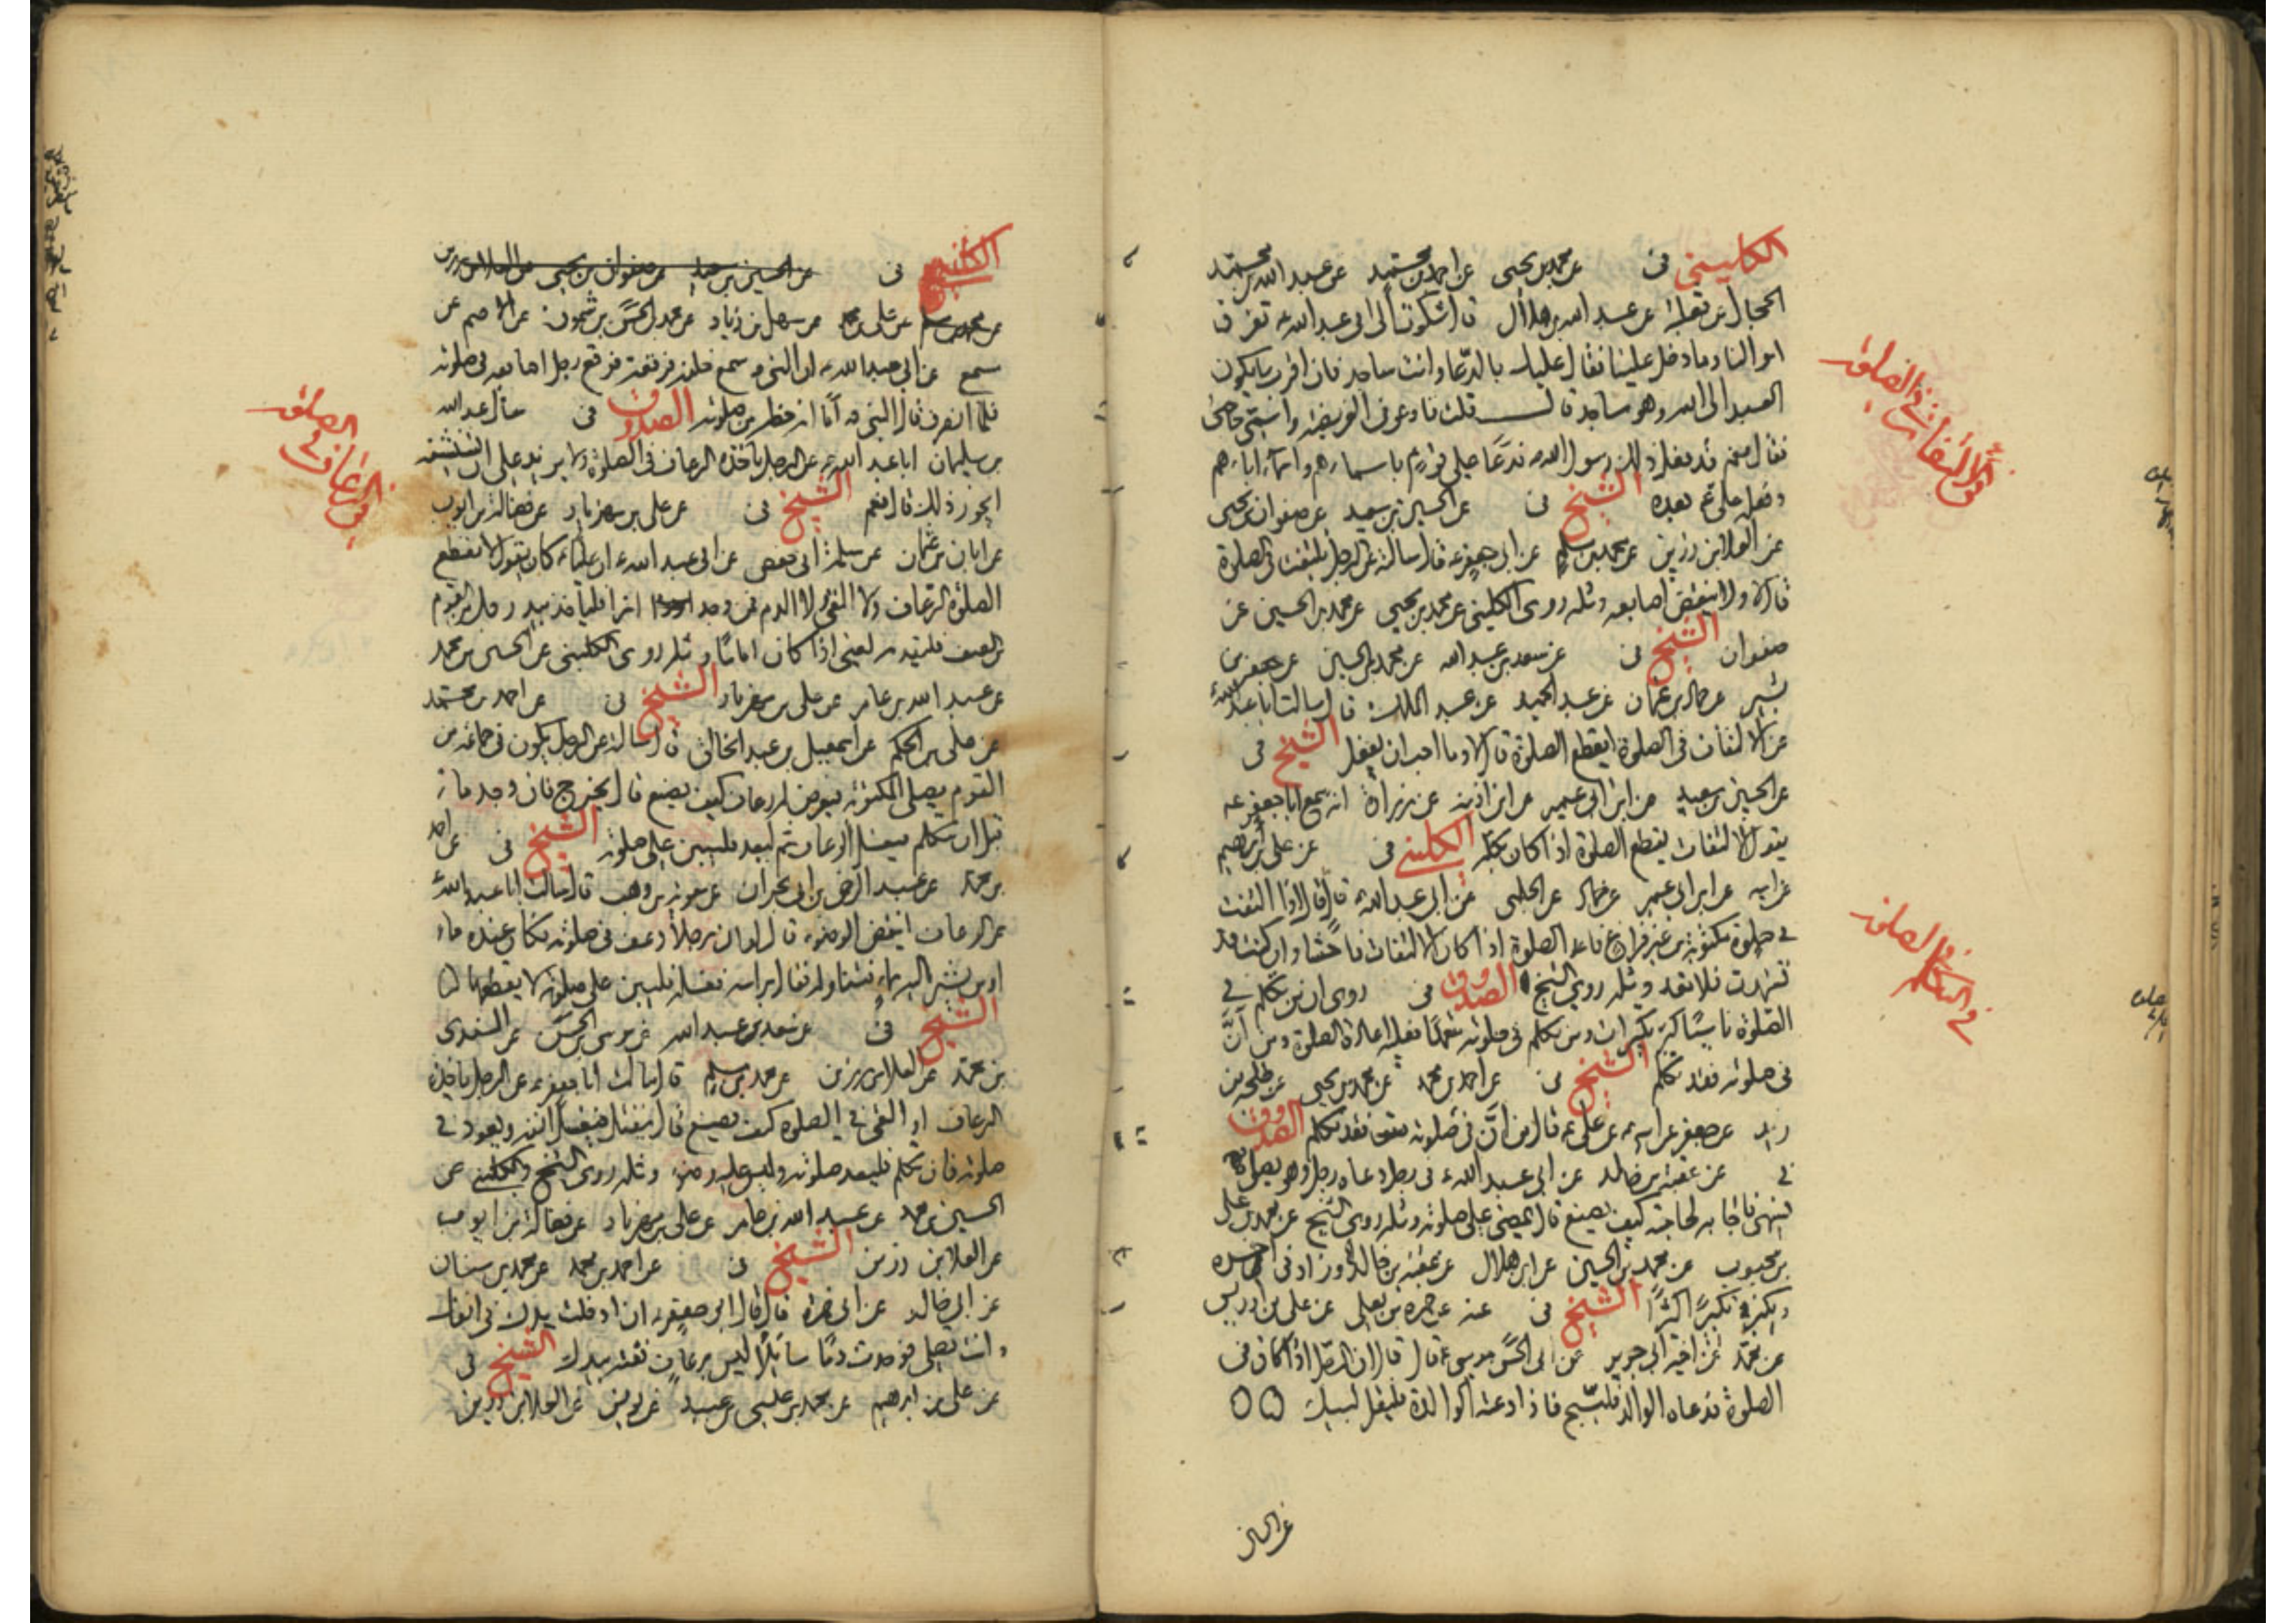 الكليني فى عن محمد بن يحيى عن احمد بن محمد عن عبد الله بن محمد
الحجال عن ثعلبة عن عبد الله بن هلال قال شكوت الى ابى عبد الله ع تفرق
اموالنا وما دخل علينا فقال عليك بالدعاء وانت ساجد فان اقرب ما يكون
العبد الى الله وهو ساجد قال قلت فادعو فى الفريضة واسمى حاجتى
فقال نعم قد فعل ذلك رسول الله فدعا على قوم باسمائهم واسماء ابائهم
وفعل على ع بعده الشيخ فى عن الحسين بن سعيد عن صفوان بن يحيى
عن العلا بن رزين عن محمد بن مسلم عن ابى جعفر ع قال سالته عن الرجل يلتفت فى الصلوة
قال لا ولا ينقض اصابعه ومثله روى الكلينى عن محمد بن يحيى عن محمد بن الحسين عن
صفوان الشيخ فى عن سعد بن عبد الله عن محمد بن الحسين عن جعفر بن
بشير عن حماد بن عثمان عن عبد الحميد عن عبد الملك قال سالت ابا عبد الله ع
عن الالتفات فى الصلوة ايقطع الصلوة قال لا وما احب ان يفعل الشيخ فى
عن الحسين بن سعيد عن ابن ابى عمير عن ابن اذينه عن زرارة انه سمع ابا جعفر ع
يقول الالتفات يقطع الصلوة اذا كان بكله الكلينى فى عن على بن ابرهيم
عن ابيه عن ابن ابى عمير عن حماد عن الحلبى عن ابى عبد الله ع قال قال اذا التفت
فى صلوة مكتوبة من غير فراغ فاعد الصلوة اذا كان الالتفات فاحشا وان كنت قد
تشهدت فلا تعد ومثله روى الشيخ الصدوق فى روى ان من تكلم فى
الصلوة ناسيا كبر تكبيرات ومن تكلم فى صلوته متعمدا فعليه اعادة الصلوة ومن انّ
فى صلوته فقد تكلم الشيخ فى عن احمد بن محمد عن محمد بن يحيى عن طلحة بن
زيد عن جعفر عن ابيه ع عن على ع قال من انّ فى صلوته فقد تكلم الصدوق
فى عن عقبة بن خالد عن ابى عبد الله ع فى رجل دعاه رجل وهو يصلى
فسهى فاجابه لحاجته كيف يصنع قال يمضى على صلوته ومثله روى الشيخ عن محمد بن على
بن محبوب عن محمد بن الحسين عن ابن هلال عن عقبة بن خالد وزاد فى اخره
ويكبر تكبيرا كثيرا الشيخ فى عنه عن حمزة بن يعلى عن على بن ادريس
عن محمد عن اخيه ابى جرير عن ابى الحسن موسى ع قال قال ان الرجل اذا كان فى
الصلوة فدعاه الوالد فليسبح فاذا دعته الوالدة فليقل لبيك
الالتفات فى الصلوة
فى التكلم فى الصلوة
الكلينى فى عن الحسين بن سعيد عن صفوان بن يحيى عن العلا بن رزين
عن محمد بن مسلم عن على بن محمد عن سهل بن زياد عن محمد بن الحسن بن شمون عن الاصم عن
مسمع عن ابى عبد الله ع ان النبى ص سمع خلفه فرقعة فرقع رجل اصابعه فى صلوته
فلما انصرف قال النبى ص أما انه حظه من صلوته الصدوق فى سال عبد الله
بن سليمان ابا عبد الله ع عن الرجل ياخذه الرعاف فى الصلوة ولا يزيد على ان
ايجوز ذلك قال نعم الشيخ فى عن على بن مهزيار عن فضالة بن ايوب
عن ابان بن عثمان عن سلمة ابى حفص عن ابى عبد الله ع ان عليا ع كان يقول لا يقطع
الصلوة الرعاف ولا القى ولا الدم فمن وجد ازا فلياخذ بيد رجل من القوم
من الصف فليقدمه يعنى اذا كان اماما ومثله روى الكلينى عن الحسين بن محمد
عن عبد الله بن عامر عن على بن مهزيار الشيخ فى عن احمد بن محمد
عن على بن الحكم عن اسمعيل بن عبد الخالق قال سالته عن الرجل يكون فى جماعة من
القوم يصلى المكتوبة فيعرض له رعاف كيف يصنع قال يخرج فان وجد ماء
قبل ان يتكلم فيغسل الرعاف ثم ليعد فليبن على صلوته الشيخ فى عن احمد
بن محمد عن عبد الرحمن بن ابى نجران عن معوية بن وهب قال سالت ابا عبد الله ع
عن الرعاف اينقض الوضوء قال لو ان رجلا رعف فى صلوته وكان عنده ماء
او من يشير اليه بماء فتناوله فقال براسه فغسله فليبن على صلوته لا يقطعها
الشيخ فى عن سعد بن عبد الله عن موسى بن الحسن عن السندى
بن محمد عن العلا بن رزين عن محمد بن مسلم قال سالت ابا جعفر ع عن الرجل ياخذه
الرعاف او القى فى الصلوة كيف يصنع قال ينفتل فيغسل انفه ويعود فى
صلوته فان تكلم فليعد صلوته وليس عليه وضوء ومثله روى الشيخ والكلينى عن
الحسين بن محمد عن عبد الله بن عامر عن على بن مهزيار عن فضالة بن ايوب
عن العلا بن رزين الشيخ فى عن احمد بن محمد عن محمد بن سنان
عن ابى خالد عن ابى حمزة قال قال ابو جعفر ع ان ادخلت يدك فى انفك
وانت تصلى فوجدت دما سائلا ليس برعاف ففته بيدك الشيخ فى
عن على بن ابرهيم عن محمد بن عيسى بن عبيد عن يونس عن العلا بن رزين
الرعاف فى الصلوة